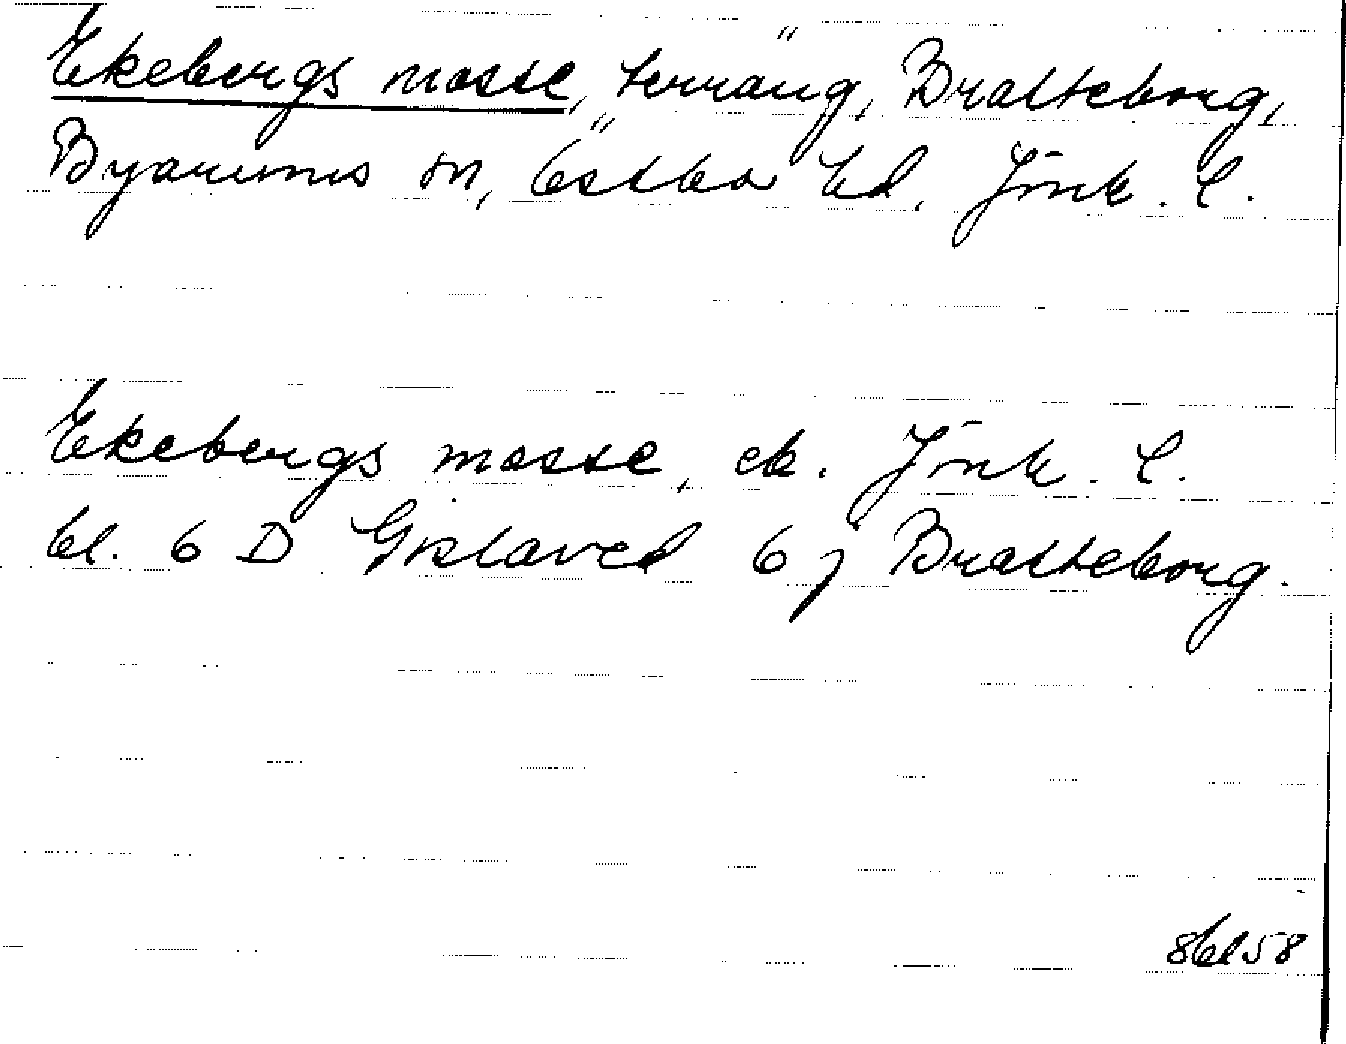 Ekebergs mosse, terräng, Bratteborg,
Byarums sn, Östbo hd, Jönk. l.
Ekebergs mosse, ek. Jönk. l.
bl. 6 D Gislaved 6 j Bratteborg.